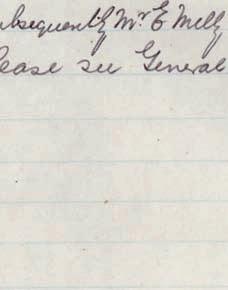 ubsequently Mr E Melly
lease see General